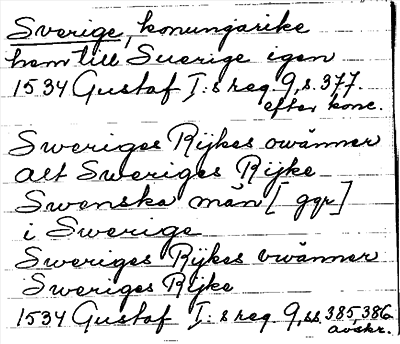 Sverige, konungarike
hem till Suerige igen
1534 Gustaf I:s reg. 9, s. 377.
efter konc.
Sweriges Rijkes owänner
alt Sweriges Rijke
Swenska män [ggr]
i Swerige
Sweriges Rijkes owänner
Sweriges Rijke
1534 Gustaf I:s reg 9, ss. 385, 386
avskr.